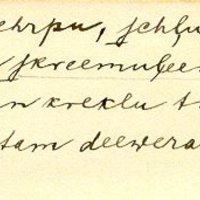 ehrpu, schķu
skreemuļees
n kreklu t
tam deewera